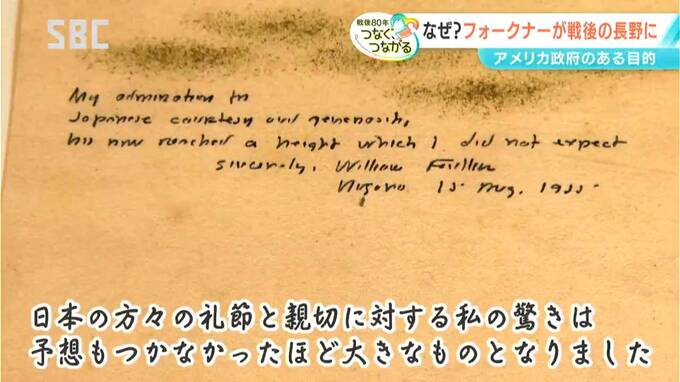 SBC
戦後80年
つなぐ、
つながる
なぜ?フォークナーが戦後の長野に
アメリカ政府のある目的
My admiration for
Japanese courtesy and generosity,
has now reached a height which I did not expect
Sincerely, William Faulkner
Nagano 15 Aug. 1955.
日本の方々の礼節と親切に対する私の驚きは
予想もつかなかったほど大きなものとなりました